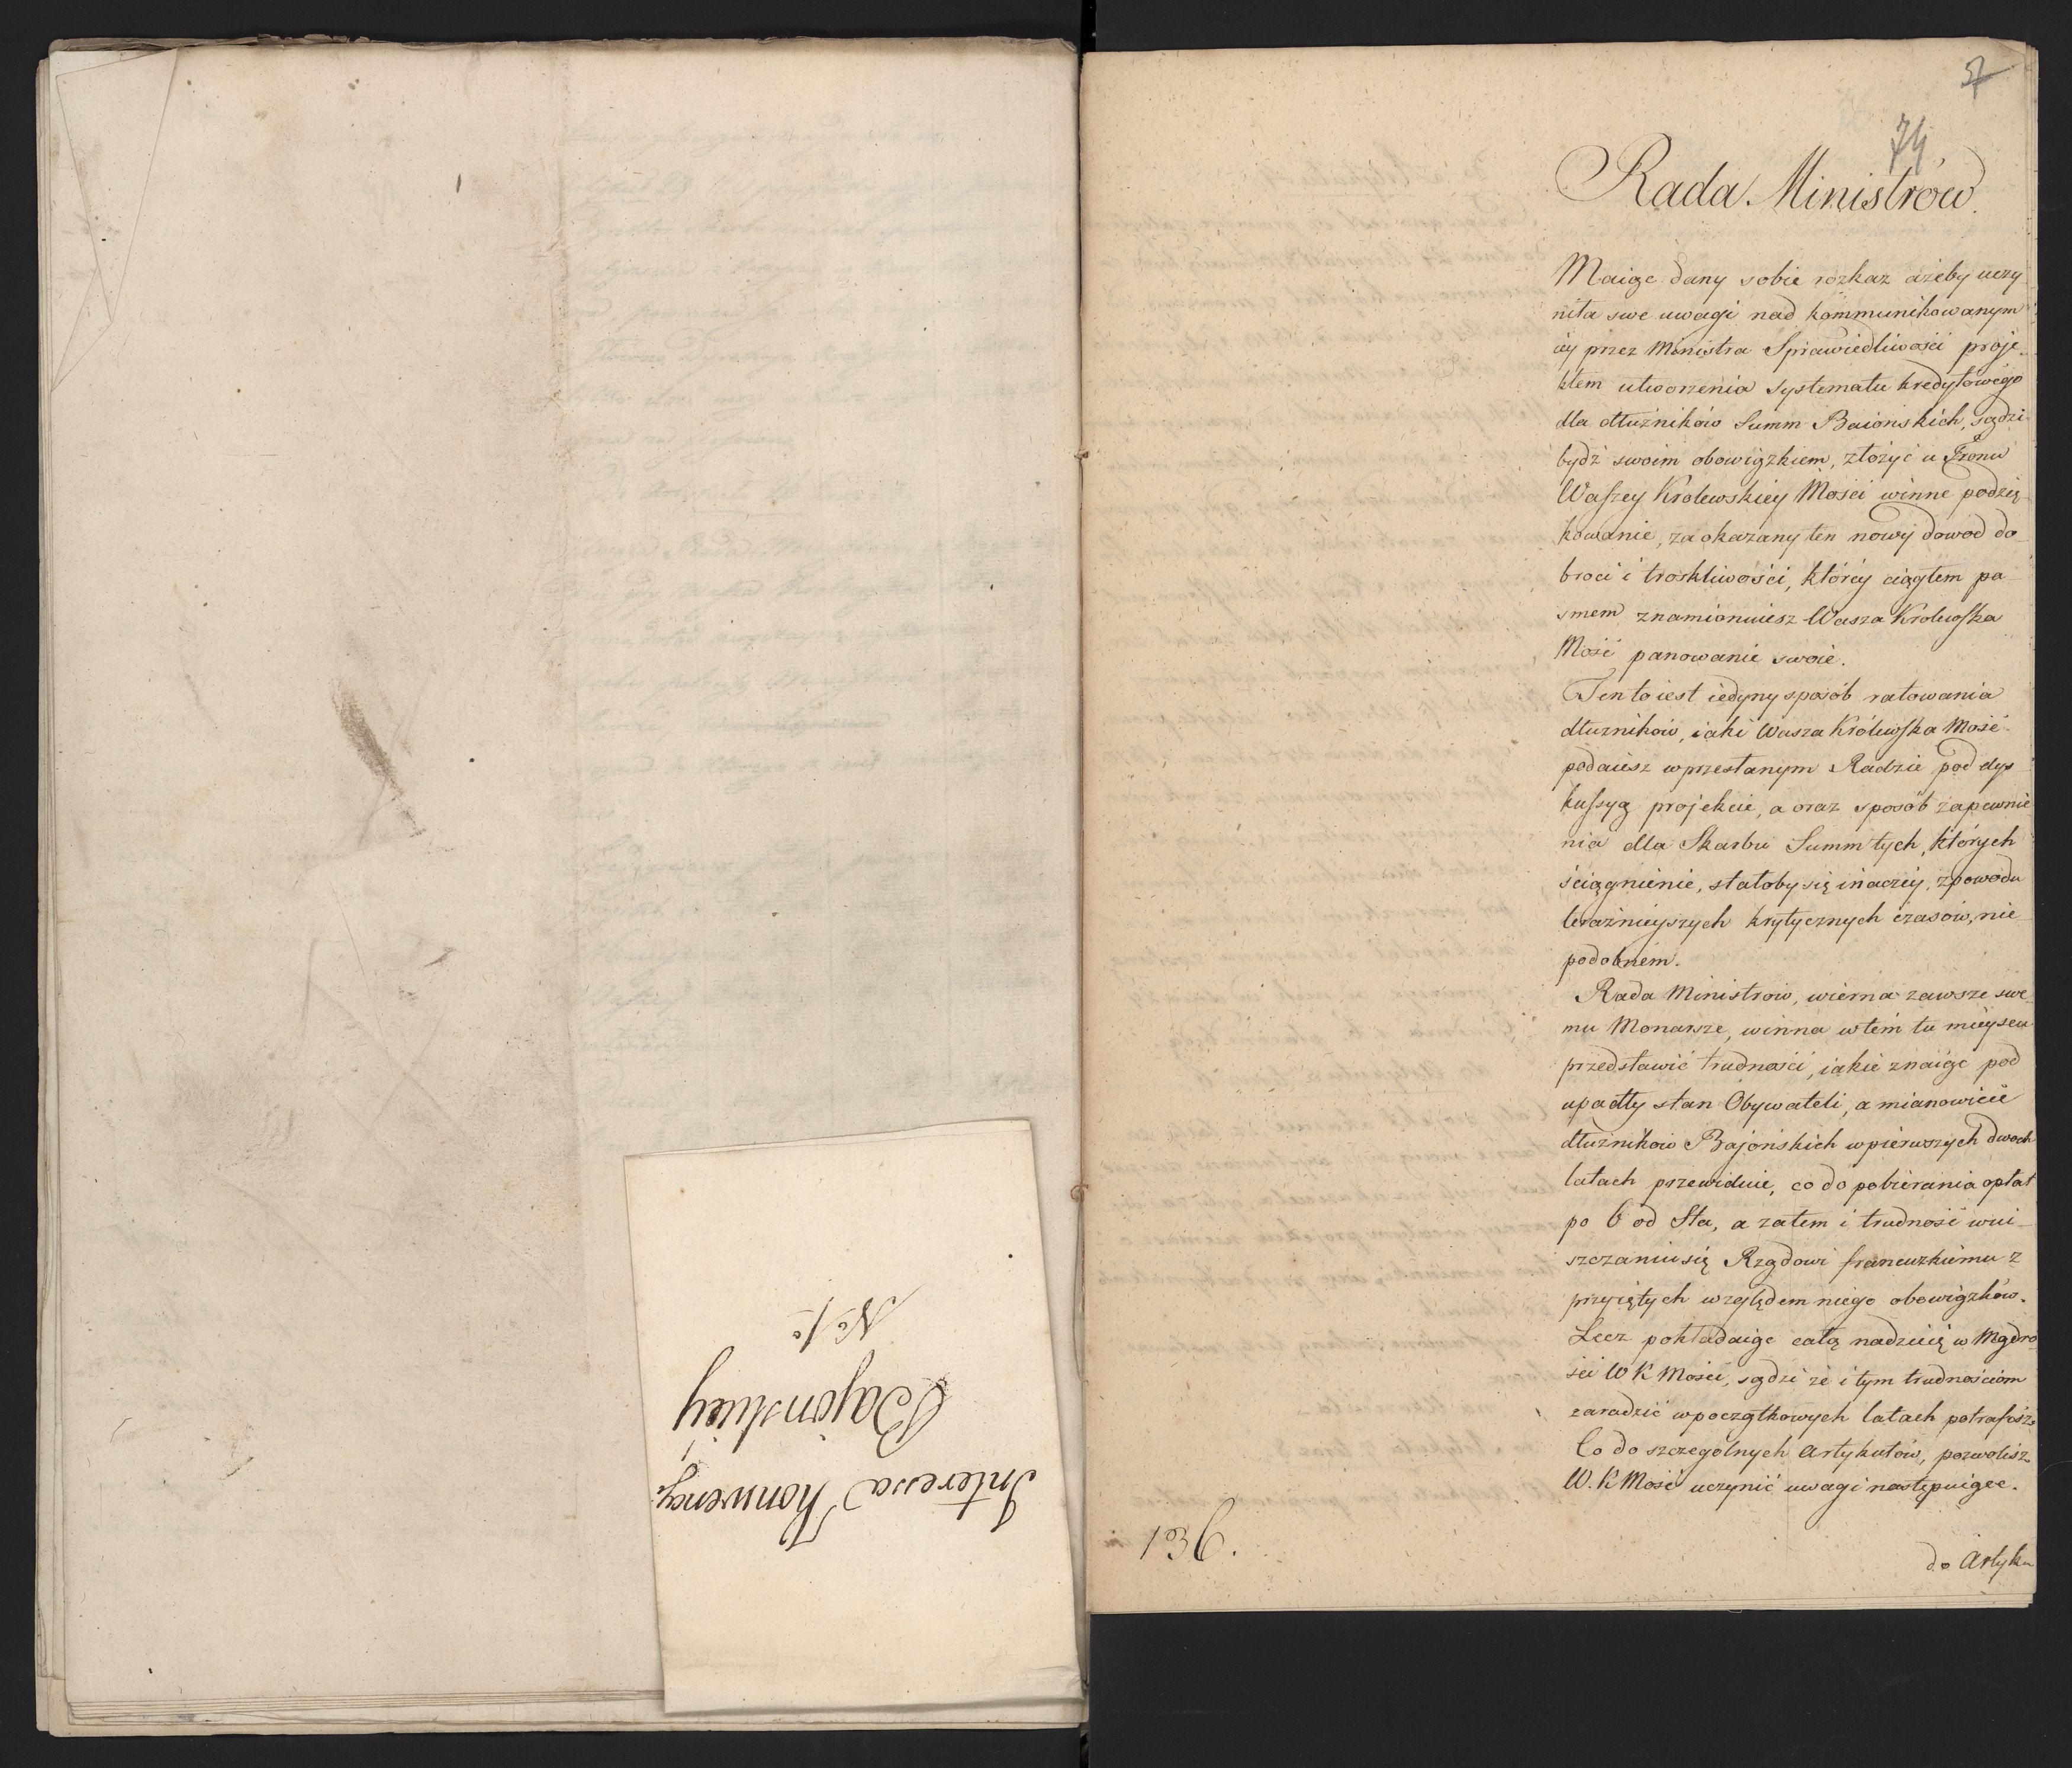 Interesa Konwencyi
Bajońskiey
No 1o
57
74
Rada Ministrów.
Maiąc dany sobie rozkaz ażeby uczy
niła swe uwagi nad kommunikowanym
iey przez Ministra Sprawiedliwości proje-
ktem utworzenia systematu kredytowego
dla dłużników Summ Baionskich, sądzi
bydź swoim obowiązkiem, złożyć u Tronu
Waszey Krolewskiey Mosci winne podzię
kowanie, za okazany ten nowy dowod do
broci i troskliwości, którey ciągłem pa-
smem znamionuiesz Wasza Krolewska
Mość panowanie swoie.
Ten to iest iedyny sposób ratowania
dłuznikow, iaki Wasza Królewska Mość
podaiesz w przesłanym Radzie pod dys
kussyą projekcie, a oraz sposób zapewnie
nia dla Skarbu Summ tych, których
ściągnienie, stałoby się inaczey, z powodu
teraźnieyszych krytycznych czasów, nie
podobnem.
Rada Ministrow, wierna zawsze swe
mu Monarsze, winna w tem tu mieyscu
przedstawić trudności, iakie znaiąc pod
upadły stan Obywateli, a mianowicie
dłużnikow Bajońskich w pierwszych dwoch
latach przewiduie, co do pobierania opłat
po 6 od Sta, a zatem i trudność wui-
szczaniu się Rządowi francuzkiemu z
przyiętych względem niego obowiązków.
Lecz pokładaiąc całą nadzieię w Mądro
ści W K Mości, sądzi że i tym trudnościom
zaradzić w początkowych latach potrafisz.
Co do szczegolnych Artykułów, pozwolisz
W. K Mość uczynić uwagi następuiące.
136.
do Artyku